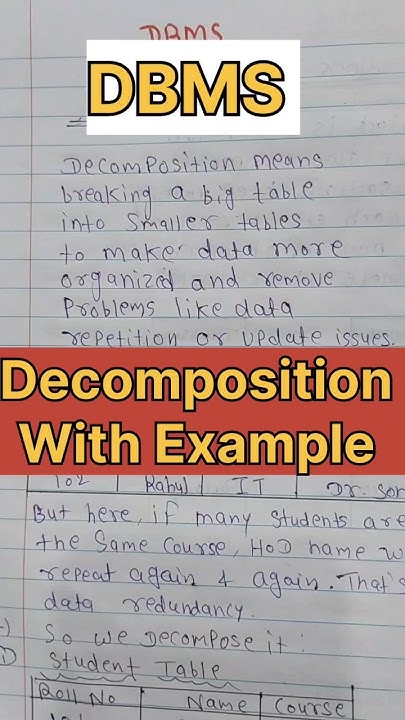 DBMS
DBMS
Decomposition means
breaking a big table
into smaller tables
to make data more
organized and remove
Problems like data
repetition or update issues.
Decomposition
With Example
102 Rahul IT Dr. Son
But here, if many students are
the same course, HoD name w
repeat again & again. That's
data redundancy.
So we Decompose it:
Student Table
Roll No Name Course